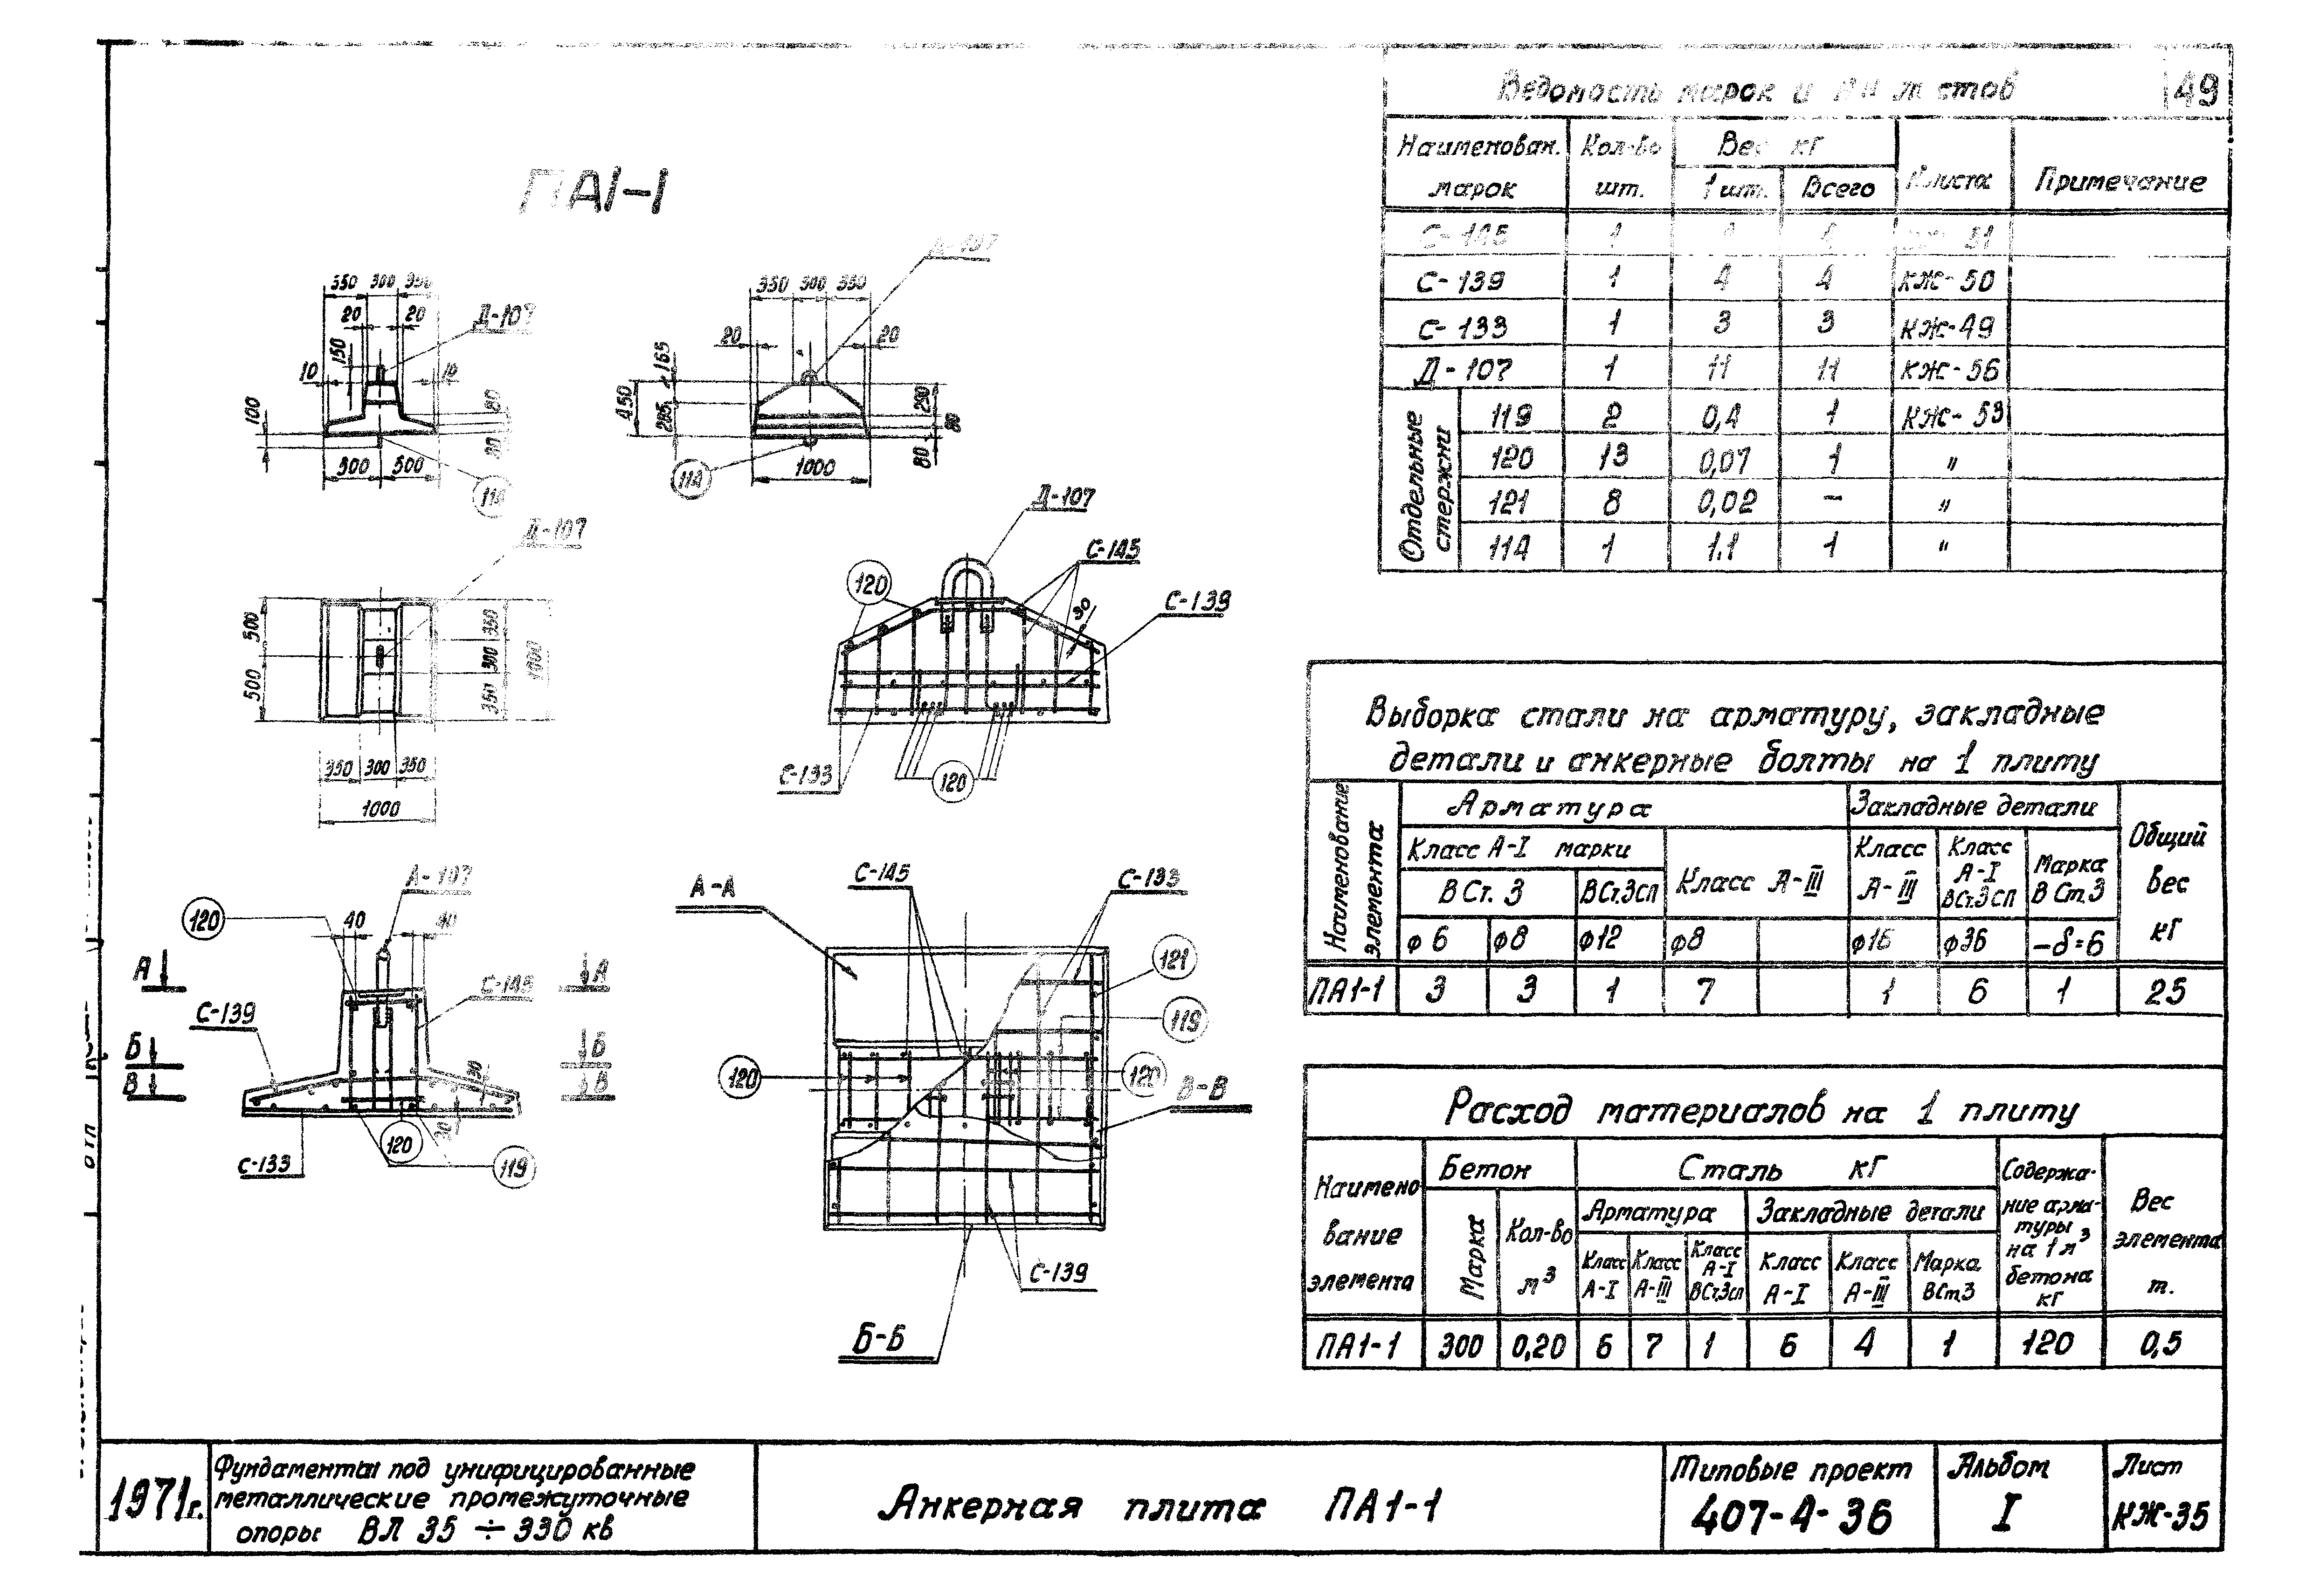 49
ПА1-1
Наименован. марок
Кол-во шт.
кг
1 шт.
Всего
Примечание
С-145 1
С-139 1 4 4 КЖ-50
С-133 1 3 3 КЖ-49
Д-107 1 11 11 КЖ-56
Отдельные стержни
119 2 0,4 1 КЖ-53
120 13 0,07 1 "
121 8 0,02 – "
114 1 1.1 1 "
350 300 350
20 20
Д-107
150
10 10
100
80
500 500
114
Д-107
350 300 350
20 20
165
450
285
290
80
80
1000
114
Д-107
500
500
350
300
350
1000
350 300 350
1000
Д-107
С-145
120
С-139
30
С-133
120
А-107
120
40 40
А А
С-145
С-139
Б Б
В В
30
30
120
С-133
119
А-А
С-145
С-133
121
119
120
120
В-В
С-139
Б-Б
Выборка стали на арматуру, закладные
детали и анкерные болты на 1 плиту
Наименование элемента
Арматура
Закладные детали
Общий вес кг
Класс А-I марки
Класс А-III
Класс А-III
Класс А-I ВСт.3сп
Марка В Ст.3
В Ст. 3
ВСт.3сп
ф6 ф8 ф12 ф8 ф16 ф36 –δ=6
ПА1-1 3 3 1 7 1 6 1 25
Расход материалов на 1 плиту
Наимено вание элемента
Бетон
Сталь кг
Содержа- ние арма- туры на 1 м³ бетона кг
Вес элемента т.
Марка
Кол-во м³
Арматура
Закладные детали
Класс А-I
Класс А-III
Класс А-I ВСт.3сп
Класс А-I
Класс А-III
Марка ВСт3
ПА1-1 300 0,20 6 7 1 6 4 1 120 0,5
1971г.
Фундаменты под унифицированные
металлические промежуточные
опоры ВЛ 35 ÷ 330 кв
Анкерная плита ПА1-1
Типовые проект
407-4-36
Альбом
I
Лист
КЖ-35